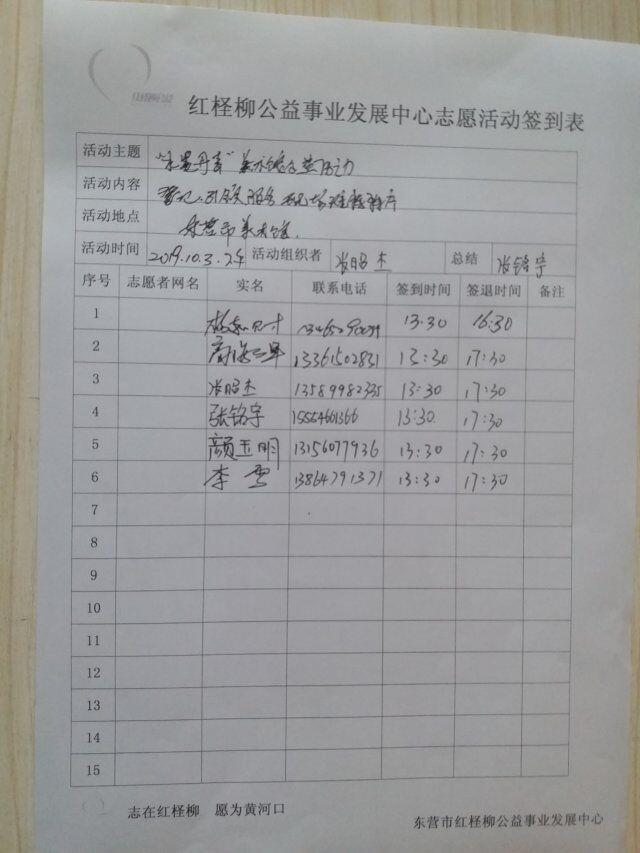 红柽柳公益事业发展中心志愿活动签到表
活动主题
活动内容 登记、引领服务 现场
活动地点 东营市美术馆
活动时间 2019.10.3.下午 活动组织者 张昭杰 总结 张铭宇
序号 志愿者网名 实名 联系电话 签到时间 签退时间 备注
1 13:30 16:30
2 13361502831 13:30 17:30
3 张昭杰 13589982335 13:30 17:30
4 张铭宇 15554601366 13:30 17:30
5 颜玉明 13156077936 13:30 17:30
6 李雪 13864791371 13:30 17:30
7
8
9
10
11
12
13
14
15
志在红柽柳 愿为黄河口 东营市红柽柳公益事业发展中心